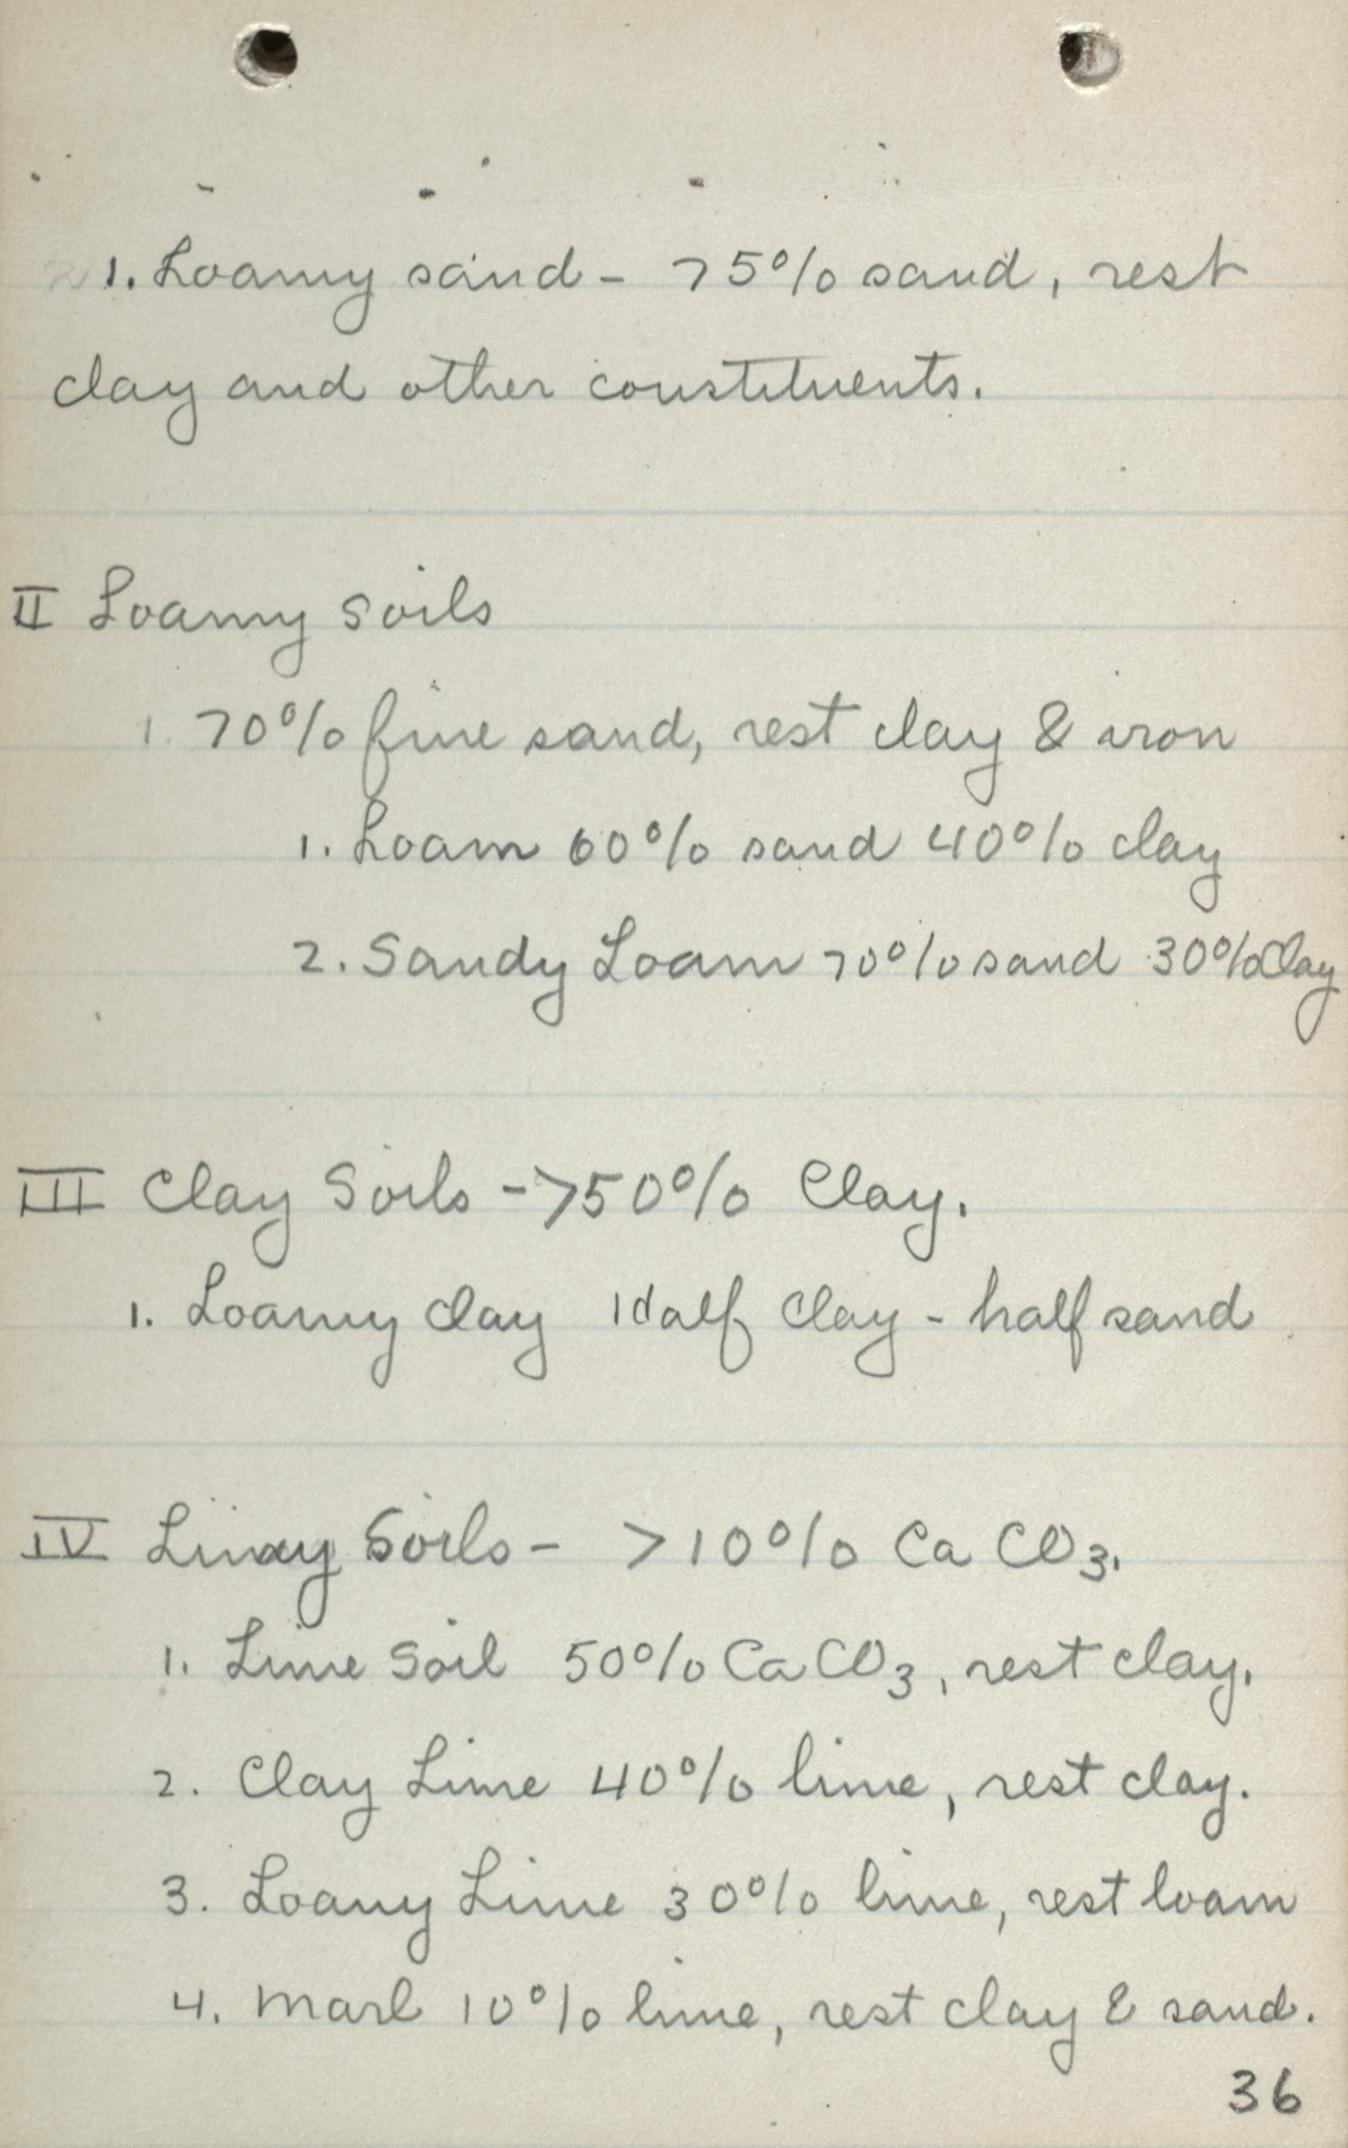 1. Loamy sand - 75% sand, rest
clay and other constituents.
II Loamy Soils
1. 70% fine sand, rest clay & iron
1. Loam 60% sand 40% clay
2. Sandy Loam 70% sand 30% Clay
III Clay Soils - >50% Clay.
1. Loamy Clay Half Clay - half sand
IV Limy Soils - >10% CaCO3.
1. Lime Soil 50% CaCO3, rest clay.
2. Clay Lime 40% lime, rest clay.
3. Loamy Lime 30% lime, rest loam
4. Marl 10% lime, rest clay & sand.
36